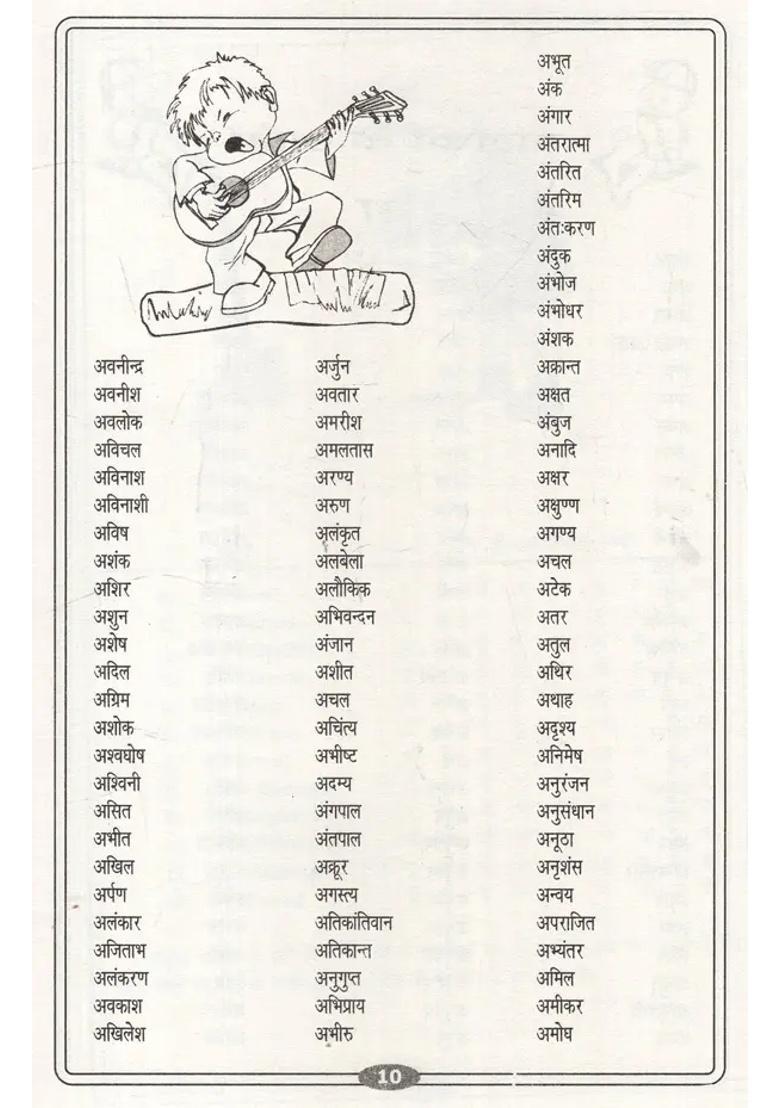 अवनीन्द्र
अवनीश
अवलोक
अविचल
अविनाश
अविनाशी
अविष
अशंक
अशिर
अशुन
अशेष
अदिल
अग्रिम
अशोक
अश्वघोष
अश्विनी
असित
अभीत
अखिल
अर्पण
अलंकार
अजिताभ
अलंकरण
अवकाश
अखिलेश
अर्जुन
अवतार
अमरीश
अमलतास
अरण्य
अरुण
अलंकृत
अलबेला
अलौकिक
अभिवन्दन
अंजान
अशीत
अचल
अचिंत्य
अभीष्ट
अदम्य
अंगपाल
अंतपाल
अक्रूर
अगस्त्य
अतिकांतिवान
अतिकान्त
अनुगुप्त
अभिप्राय
अभीरु
अभूत
अंक
अंगार
अंतरात्मा
अंतरित
अंतरिम
अंतःकरण
अंदुक
अंभोज
अंभोधर
अंशक
अक्रान्त
अक्षत
अंबुज
अनादि
अक्षर
अक्षुण्ण
अगण्य
अचल
अटेक
अतर
अतुल
अथिर
अथाह
अदृश्य
अनिमेष
अनुरंजन
अनुसंधान
अनूठा
अनृशंस
अन्वय
अपराजित
अभ्यंतर
अमिल
अमीकर
अमोघ
10